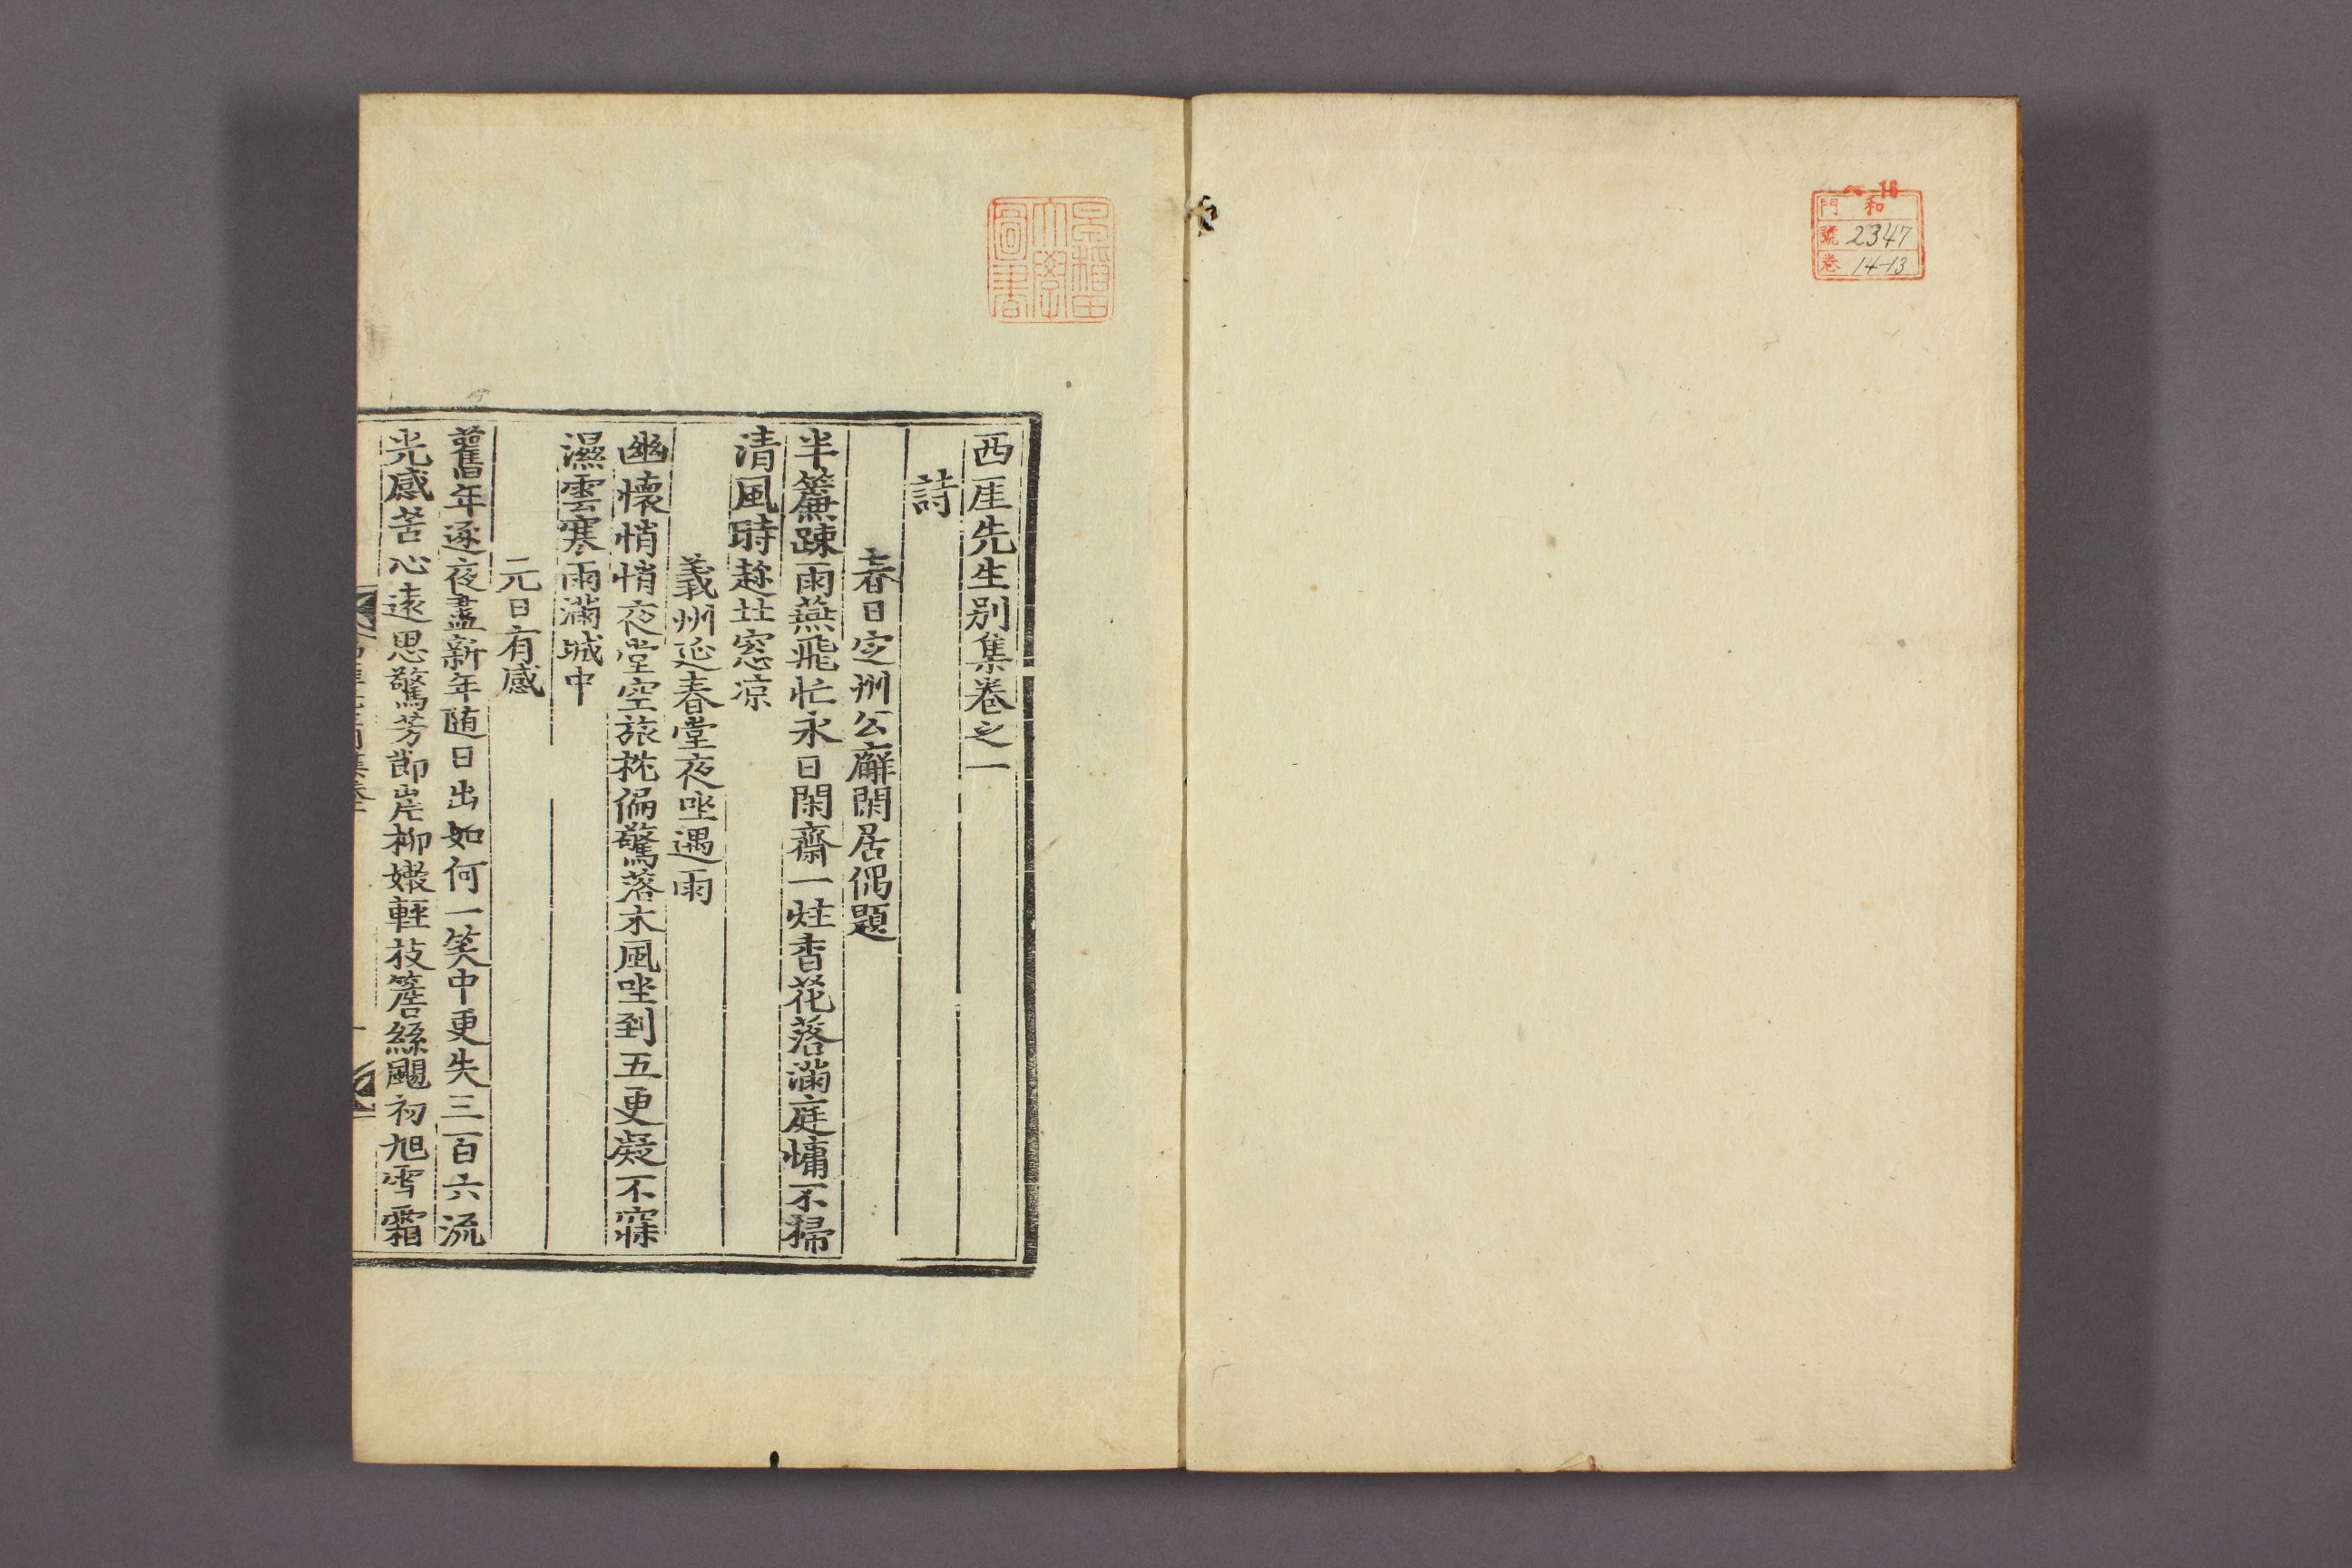 和
門
號 2347
卷 14-13
早稻田
大學
圖書
西厓先生別集卷之一
詩
春日定州公廨閑居偶題
半簾踈雨燕飛忙永日閑齋一炷香花落滿庭慵不掃
清風時趁北窓凉
義州延春堂夜坐遇雨
幽懷悄悄夜堂空旅枕偏驚落木風坐到五更凝不寐
濕雲寒雨滿城中
元日有感
舊年逐夜盡新年随日出如何一笑中更失三百六流
光感苦心遠思驚芳節岸柳嫩輕枝簷絲颺初旭雪霜